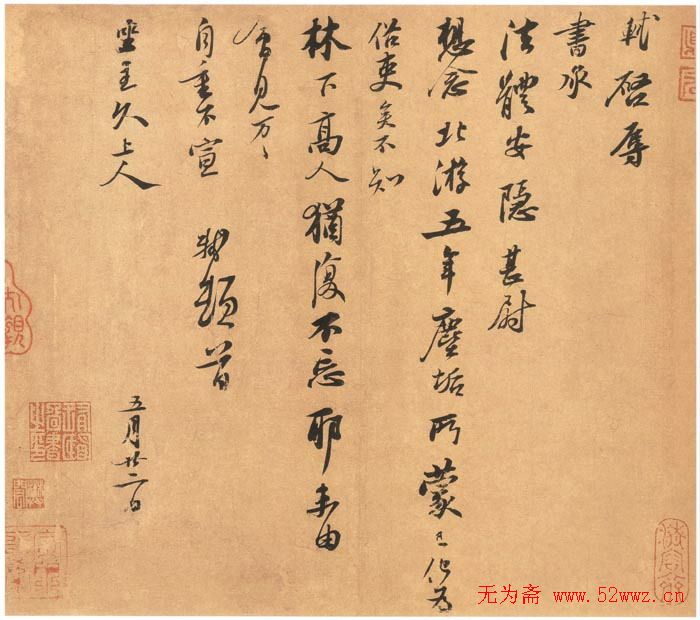 軾啓辱
書承
法體安隱甚尉
想念北游五年塵垢所蒙已化為
俗吏矣不知
林下高人猶復不忘耶未由
會見万〻
自重不宣 軾頓首
坐主久上人
五月廿二日
无为斋 www.52wwz.cn